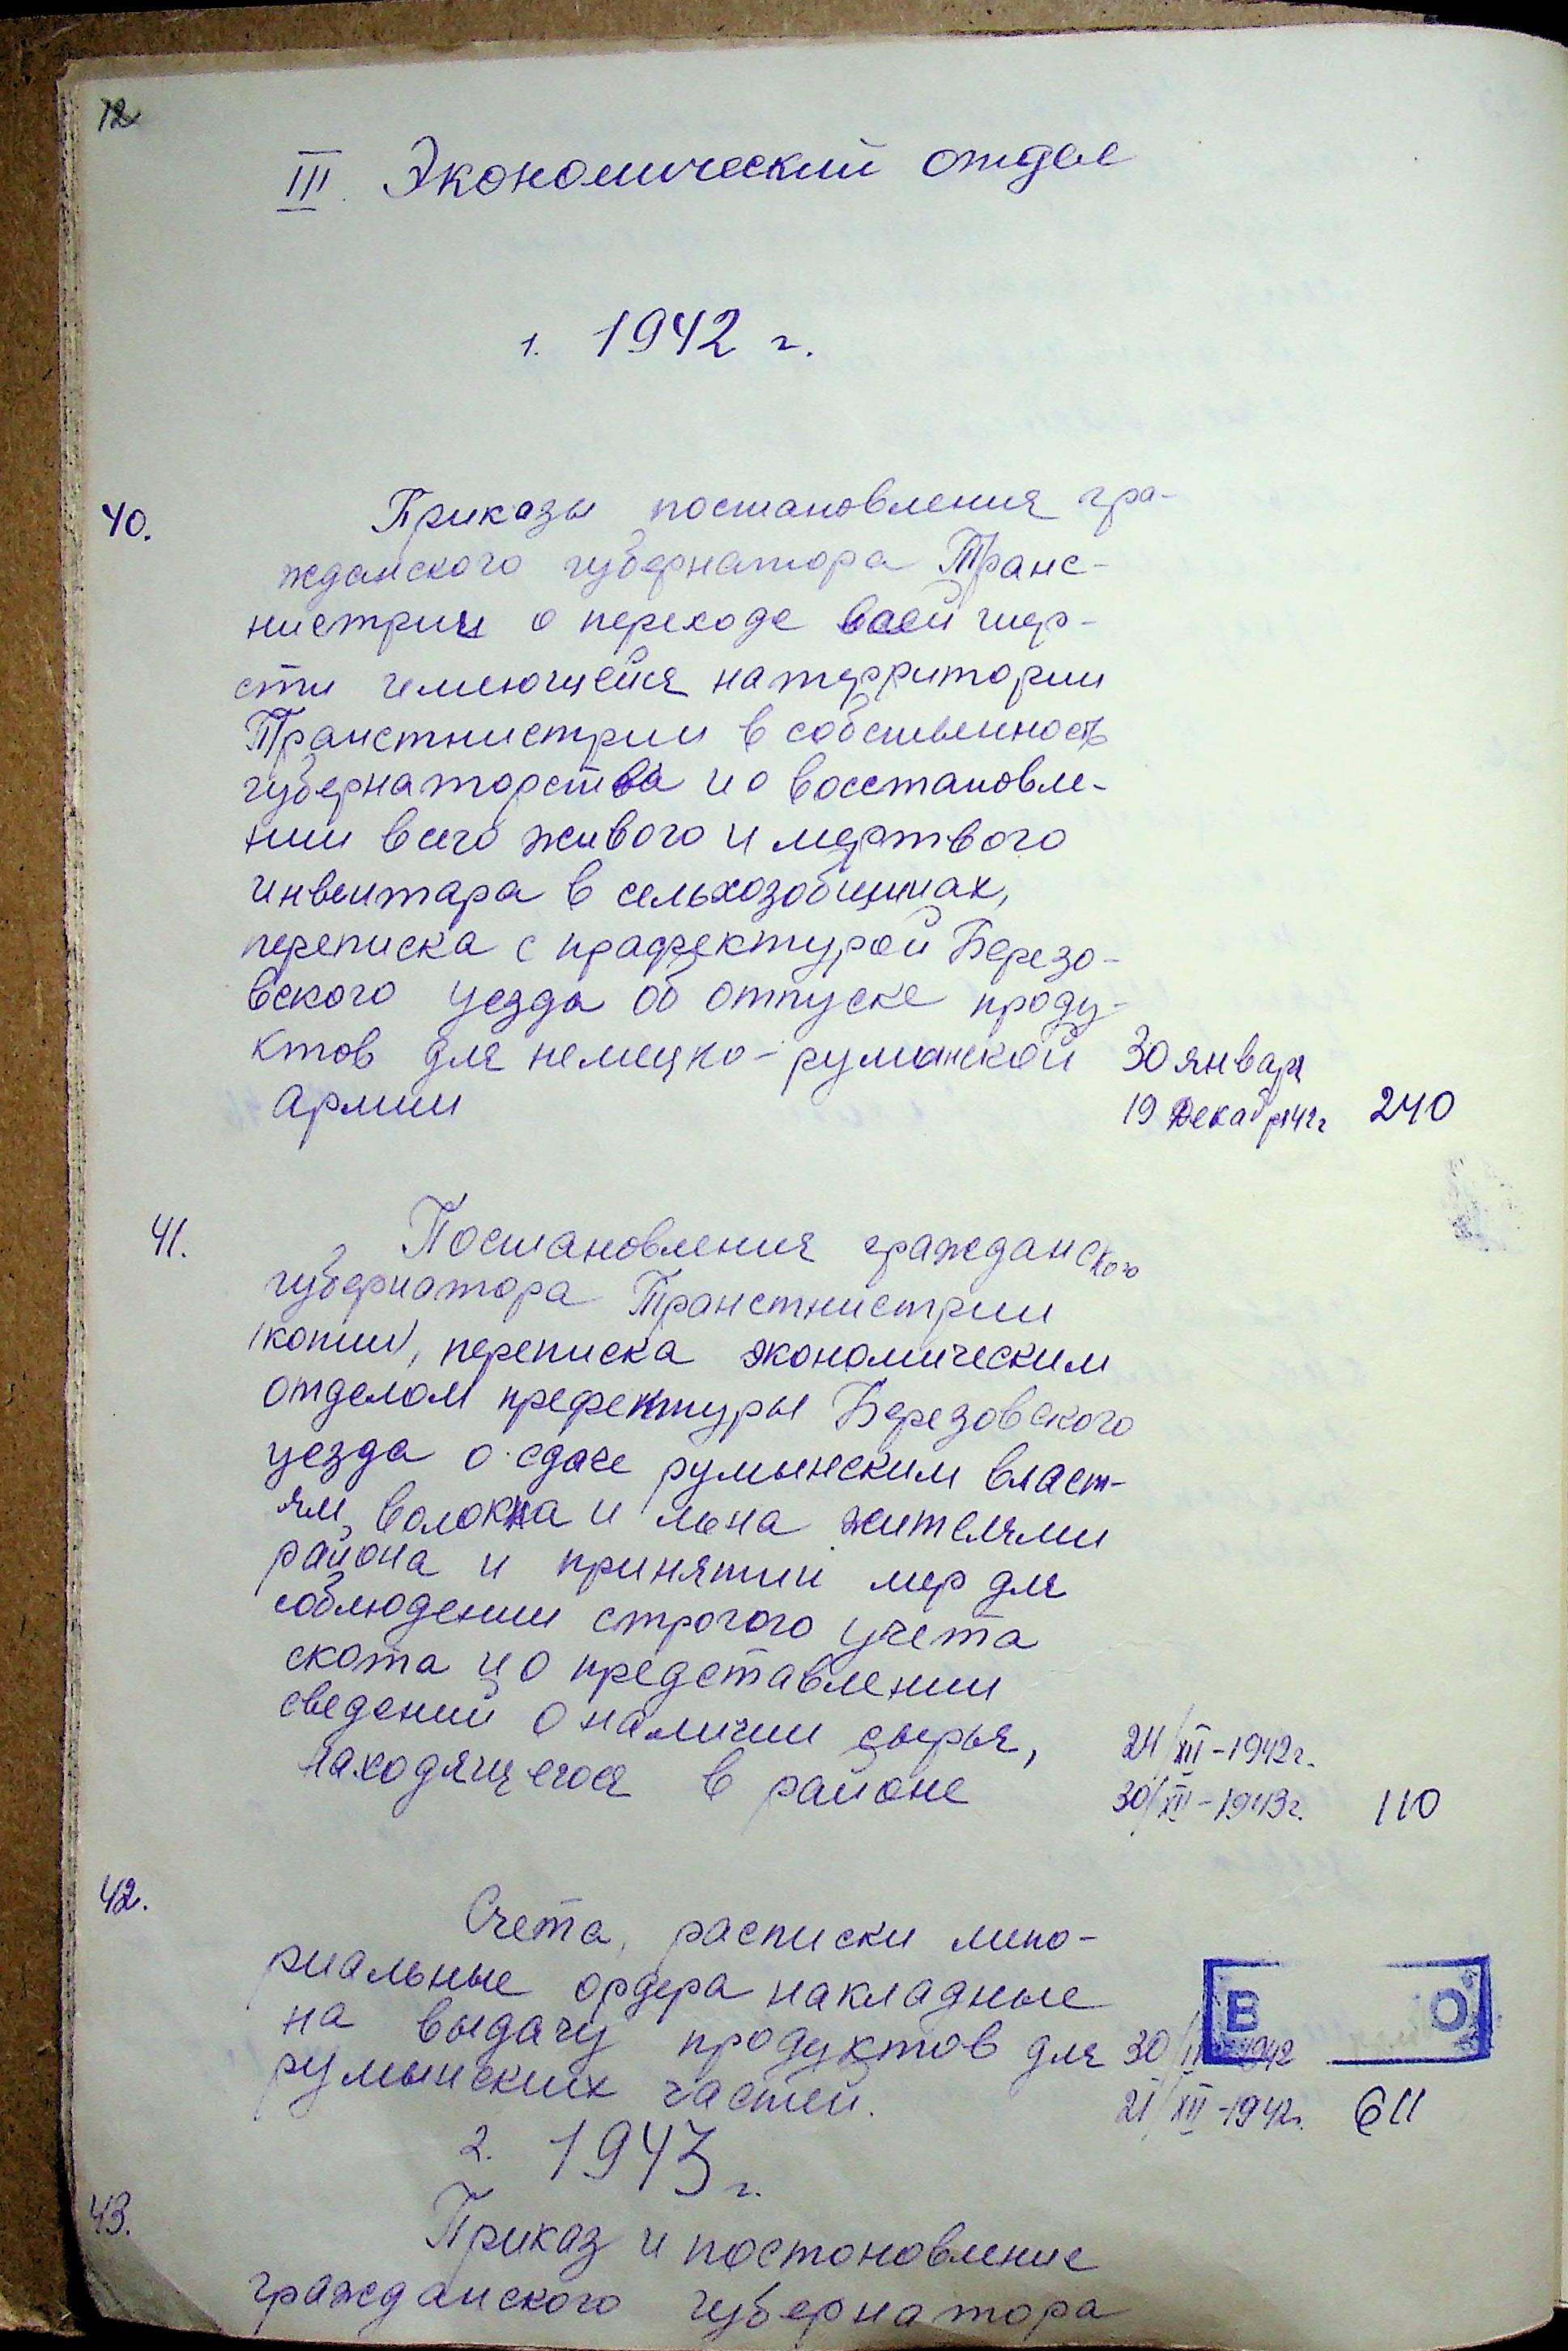 12
III. Экономический отдел
1. 1942 г.
40. Приказы постановления гра-
жданского губернатора Транс-
нистрии о переходе всей шер-
сти имеющейся на территории
Транстнистрии в собственность
губернаторства и о восстановле-
нии всего живого и мертвого
инвентара в сельхозобщинах,
переписка с префектурой Березо-
вского уезда об отпуске проду-
ктов для немецко-румынской 30 января
Армии 19 декабря 42 г 240
41. Постановления гражданского
губернатора Транстнистрии
(копии), переписка экономическим
отделом префектуры Березовского
уезда о сдаче румынским власт-
ям волокна и льна жителями
района и принятии мер для
соблюдении строгого учета
скота и о представлении
сведений о наличии сырья, 24/XII-1942г.
находящегося в районе 30/XII-1943г. 110
42. Счета, расписки
риальные ордера накладные
на выдачу продуктов для 30/ 1942
В О
румынских частей. 21/XII-1942г. 611
2. 1943 г.
43. Приказ и постоновление
гражданского губернатора